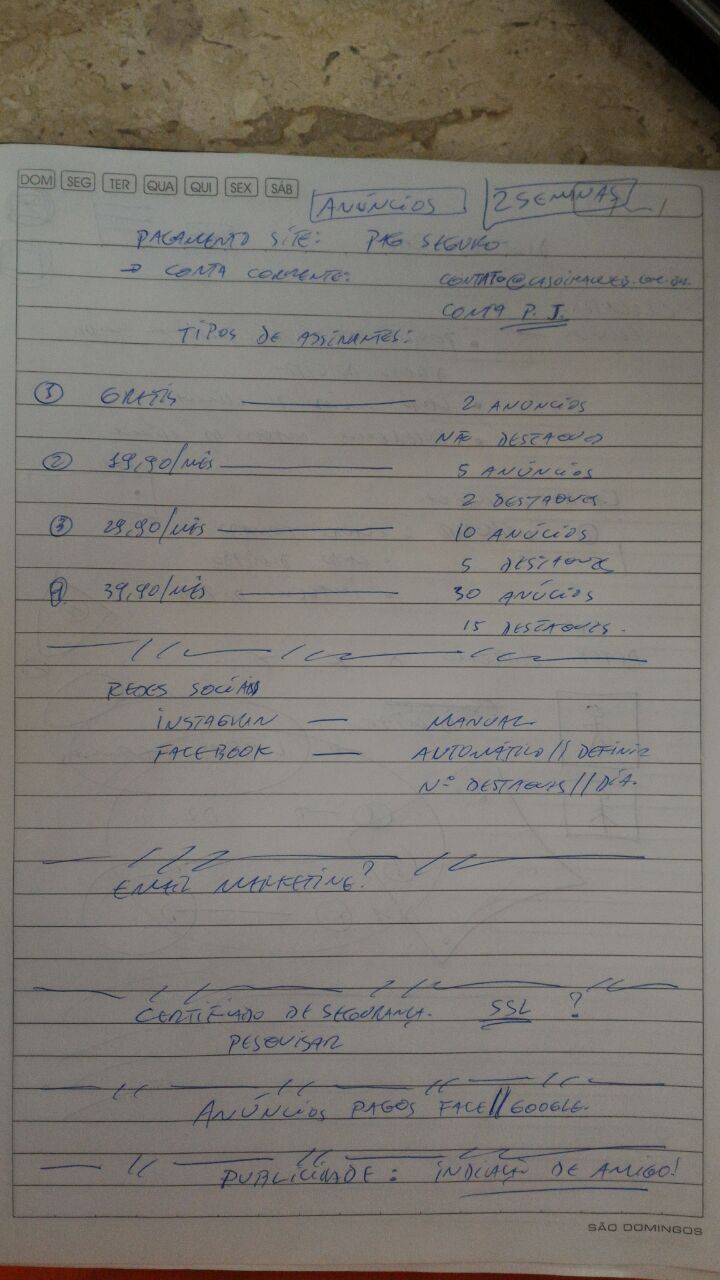 DOM SEG TER QUA QUI SEX SÁB
ANÚNCIOS 2 SEMANAS
PAGAMENTO SITE: PAG SEGURO
→ CONTA CORRENTE:
CONTA P.J.
TIPOS DE ASSINANTES:
1 GRATIS 2 ANÚNCIOS
NÃO DESTAQUE
2 19,90/MÊS 5 ANÚNCIOS
2 DESTAQUES.
3 29,90/MÊS 10 ANÚCIOS
5 DESTAQUE
4 39,90/MÊS 30 ANÚCIOS
15 DESTAQUES.
REDES SOCIAIS
INSTAGRAN — MANUAL.
FACEBOOK — AUTOMÁTICO // DEFINIR
Nº DESTAQUES // DIA.
EMAIL MARKETING?
CERTIFICADO DE SEGURANÇA. SSL ?
PESQUISAR
ANÚNCIOS PAGOS FACE // GOOGLE.
PUBLICIDADE: INDICAÇÃO DE AMIGO!
SÃO DOMINGOS